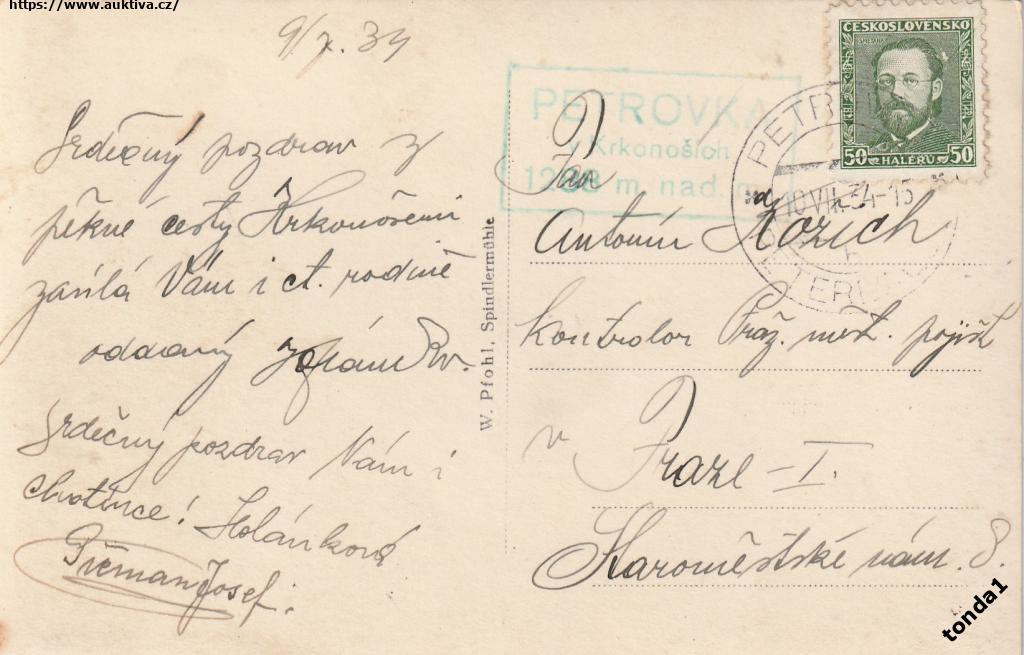 https://www.auktiva.cz/
9/7. 34
Srdečný pozdrav z
pěkné cesty Krkonošemi
zasílá Vám i ct. rodině
oddaný
Srdečný pozdrav Vám i
choťince! Holánková
Josef.
W. Pfohl, Spindlermühle
PETROVKA
v Krkonoších
m. nad. m.
ČESKOSLOVENSKO
SMETANA
50 HALÉŘŮ 50
PETR
10.VII.34-15
PETERB
Pan
Antonín Kozich
kontrolor Praž. měst. pojišť
v Praze - I.
Staroměstské nám. 8.
tonda1